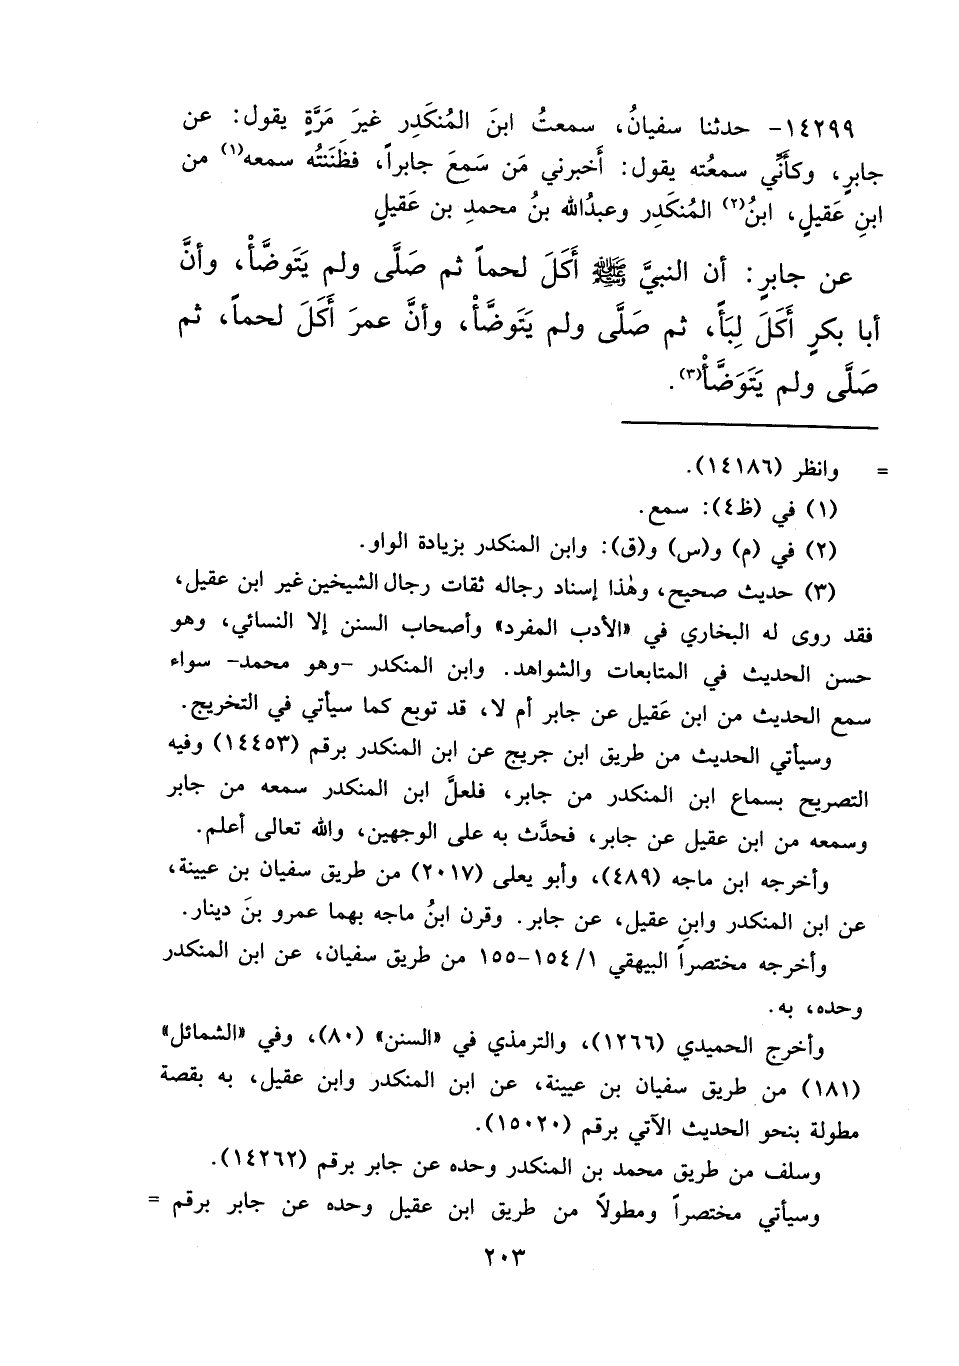 ١٤٢٩٩- حدثنا سفيانُ، سمعتُ ابنَ المُنكَدِر غيرَ مَرَّةٍ يقول: عن
جابرٍ، وكأَنِّي سمعتُه يقول: أَخبرني مَن سَمِعَ جابراً، فظَنَنتُه سمعه(١) من
ابنِ عَقيلٍ، ابنُ(٢) المُنكَدِر وعبدُالله بنُ محمدِ بن عَقيلٍ
عن جابرٍ: أن النبيَّ ﷺ أَكَلَ لحماً ثم صَلَّى ولم يَتَوضَّأْ، وأنَّ
أبا بكرٍ أَكَلَ لِبَأً، ثم صَلَّى ولم يَتَوضَّأْ، وأنَّ عمرَ أَكَلَ لحماً، ثم
صَلَّى ولم يَتَوَضَّأْ(٣).
= وانظر (١٤١٨٦).
(١) في (ظ٤): سمع.
(٢) في (م) و(س) و(ق): وابن المنكدر بزيادة الواو.
(٣) حديث صحيح، وهٰذا إسناد رجاله ثقات رجال الشيخين غير ابن عقيل،
فقد روى له البخاري في «الأدب المفرد» وأصحاب السنن إلا النسائي، وهو
حسن الحديث في المتابعات والشواهد. وابن المنكدر -وهو محمد- سواء
سمع الحديث من ابن عَقيل عن جابر أم لا، قد توبع كما سيأتي في التخريج.
وسيأتي الحديث من طريق ابن جريج عن ابن المنكدر برقم (١٤٤٥٣) وفيه
التصريح بسماع ابن المنكدر من جابر، فلعلَّ ابن المنكدر سمعه من جابر
وسمعه من ابن عقيل عن جابر، فحدَّث به على الوجهين، والله تعالى أعلم.
وأخرجه ابن ماجه (٤٨٩)، وأبو يعلى (٢٠١٧) من طريق سفيان بن عيينة،
عن ابن المنكدر وابنِ عقيل، عن جابر. وقرن ابنُ ماجه بهما عمرو بنَ دينار.
وأخرجه مختصراً البيهقي ١/ ١٥٤-١٥٥ من طريق سفيان، عن ابن المنكدر
وحده، به.
وأخرج الحميدي (١٢٦٦)، والترمذي في «السنن» (٨٠)، وفي «الشمائل»
(١٨١) من طريق سفيان بن عيينة، عن ابن المنكدر وابن عقيل، به بقصة
مطولة بنحو الحديث الآتي برقم (١٥٠٢٠).
وسلف من طريق محمد بن المنكدر وحده عن جابر برقم (١٤٢٦٢).
وسيأتي مختصراً ومطولاً من طريق ابن عقيل وحده عن جابر برقم =
٢٠٣